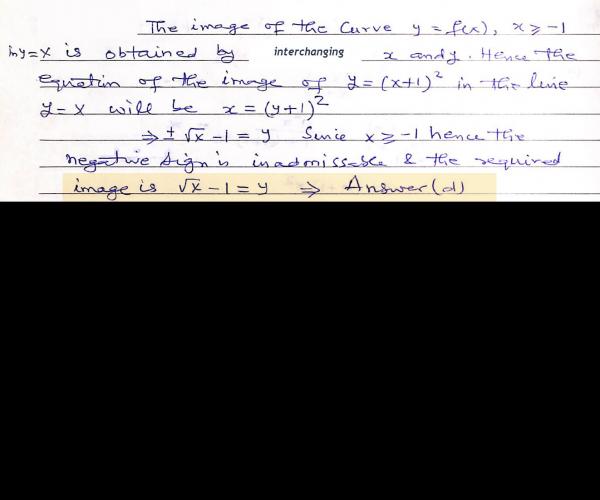 The image of the Curve y = f(x), x ≥ -1
in y=x is obtained by interchanging x and y. Hence the
equation of the image of y = (x+1)² in the line
y = x will be x = (y+1)²
⇒ ± √x - 1 = y Since x ≥ -1 hence the
negative sign is inadmissable & the required
image is √x - 1 = y ⇒ Answer (d)